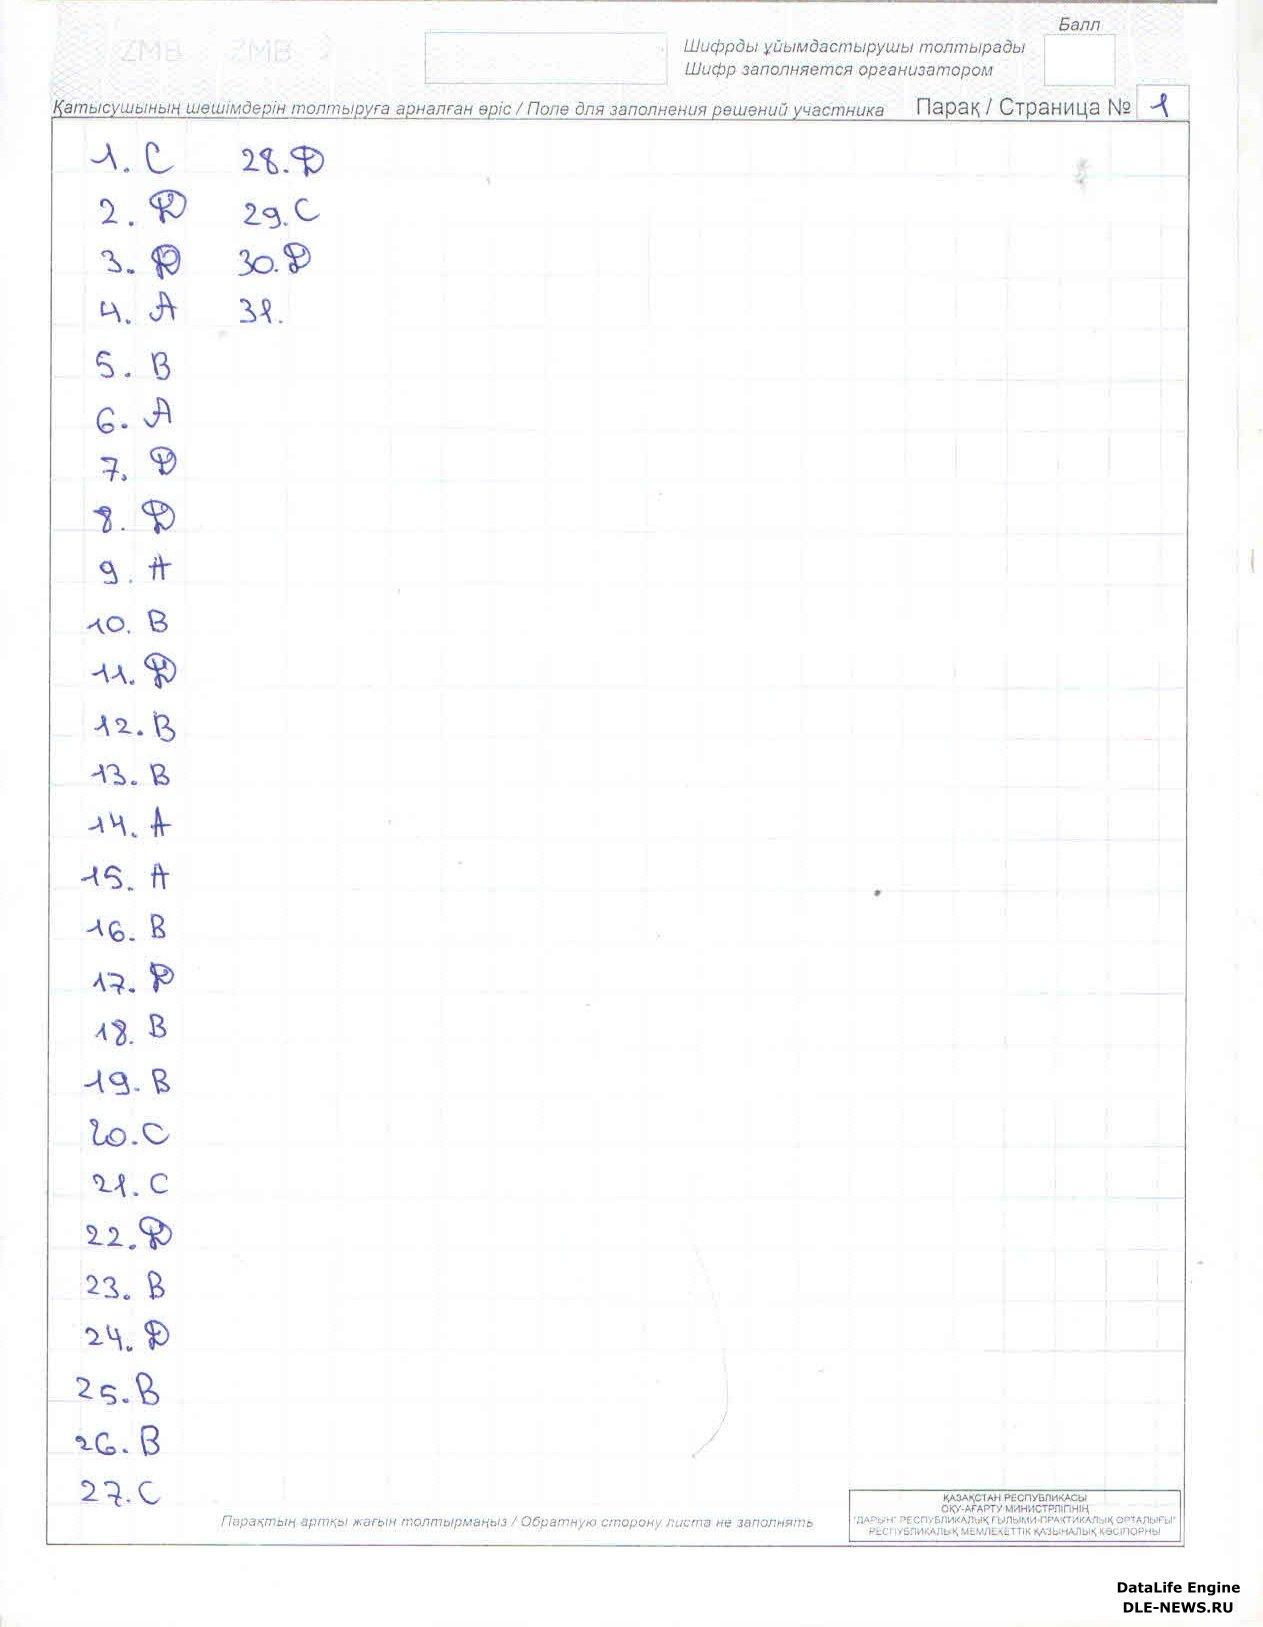 Балл
Шифрды ұйымдастырушы толтырады
Шифр заполняется организатором
Қатысушының шешімдерін толтыруға арналған өріс / Поле для заполнения решений участника Парақ / Страница № 1
1. C
2. D
3. D
4. A
5. B
6. A
7. D
8. D
9. A
10. B
11. D
12. B
13. B
14. A
15. A
16. B
17. D
18. B
19. B
20. C
21. C
22. D
23. B
24. D
25. B
26. B
27. C
28. D
29. C
30. D
31.
Парақтың артқы жағын толтырмаңыз / Обратную сторону листа не заполнять
ҚАЗАҚСТАН РЕСПУБЛИКАСЫ
ОҚУ-АҒАРТУ МИНИСТРЛІГІНІҢ
"ДАРЫН" РЕСПУБЛИКАЛЫҚ ҒЫЛЫМИ-ПРАКТИКАЛЫҚ ОРТАЛЫҒЫ"
РЕСПУБЛИКАЛЫҚ МЕМЛЕКЕТТІК ҚАЗЫНАЛЫҚ КӘСІПОРНЫ
DataLife Engine
DLE-NEWS.RU